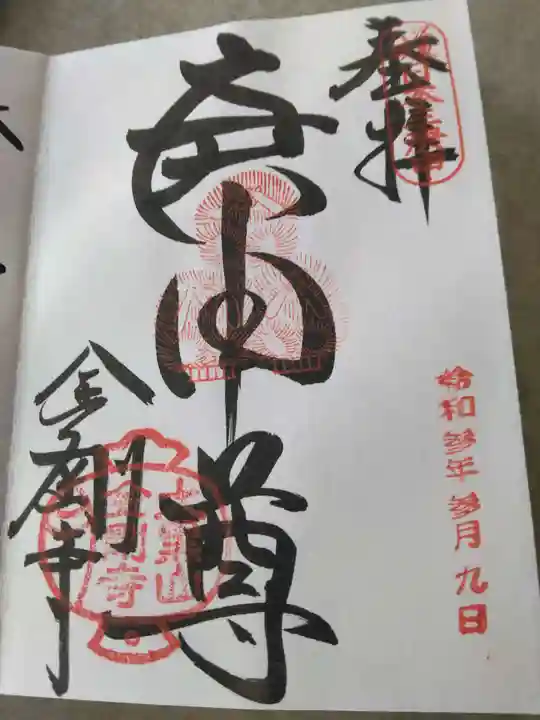 奉拝
令和参年参月九日
庚申尊
金剛寺
金剛寺